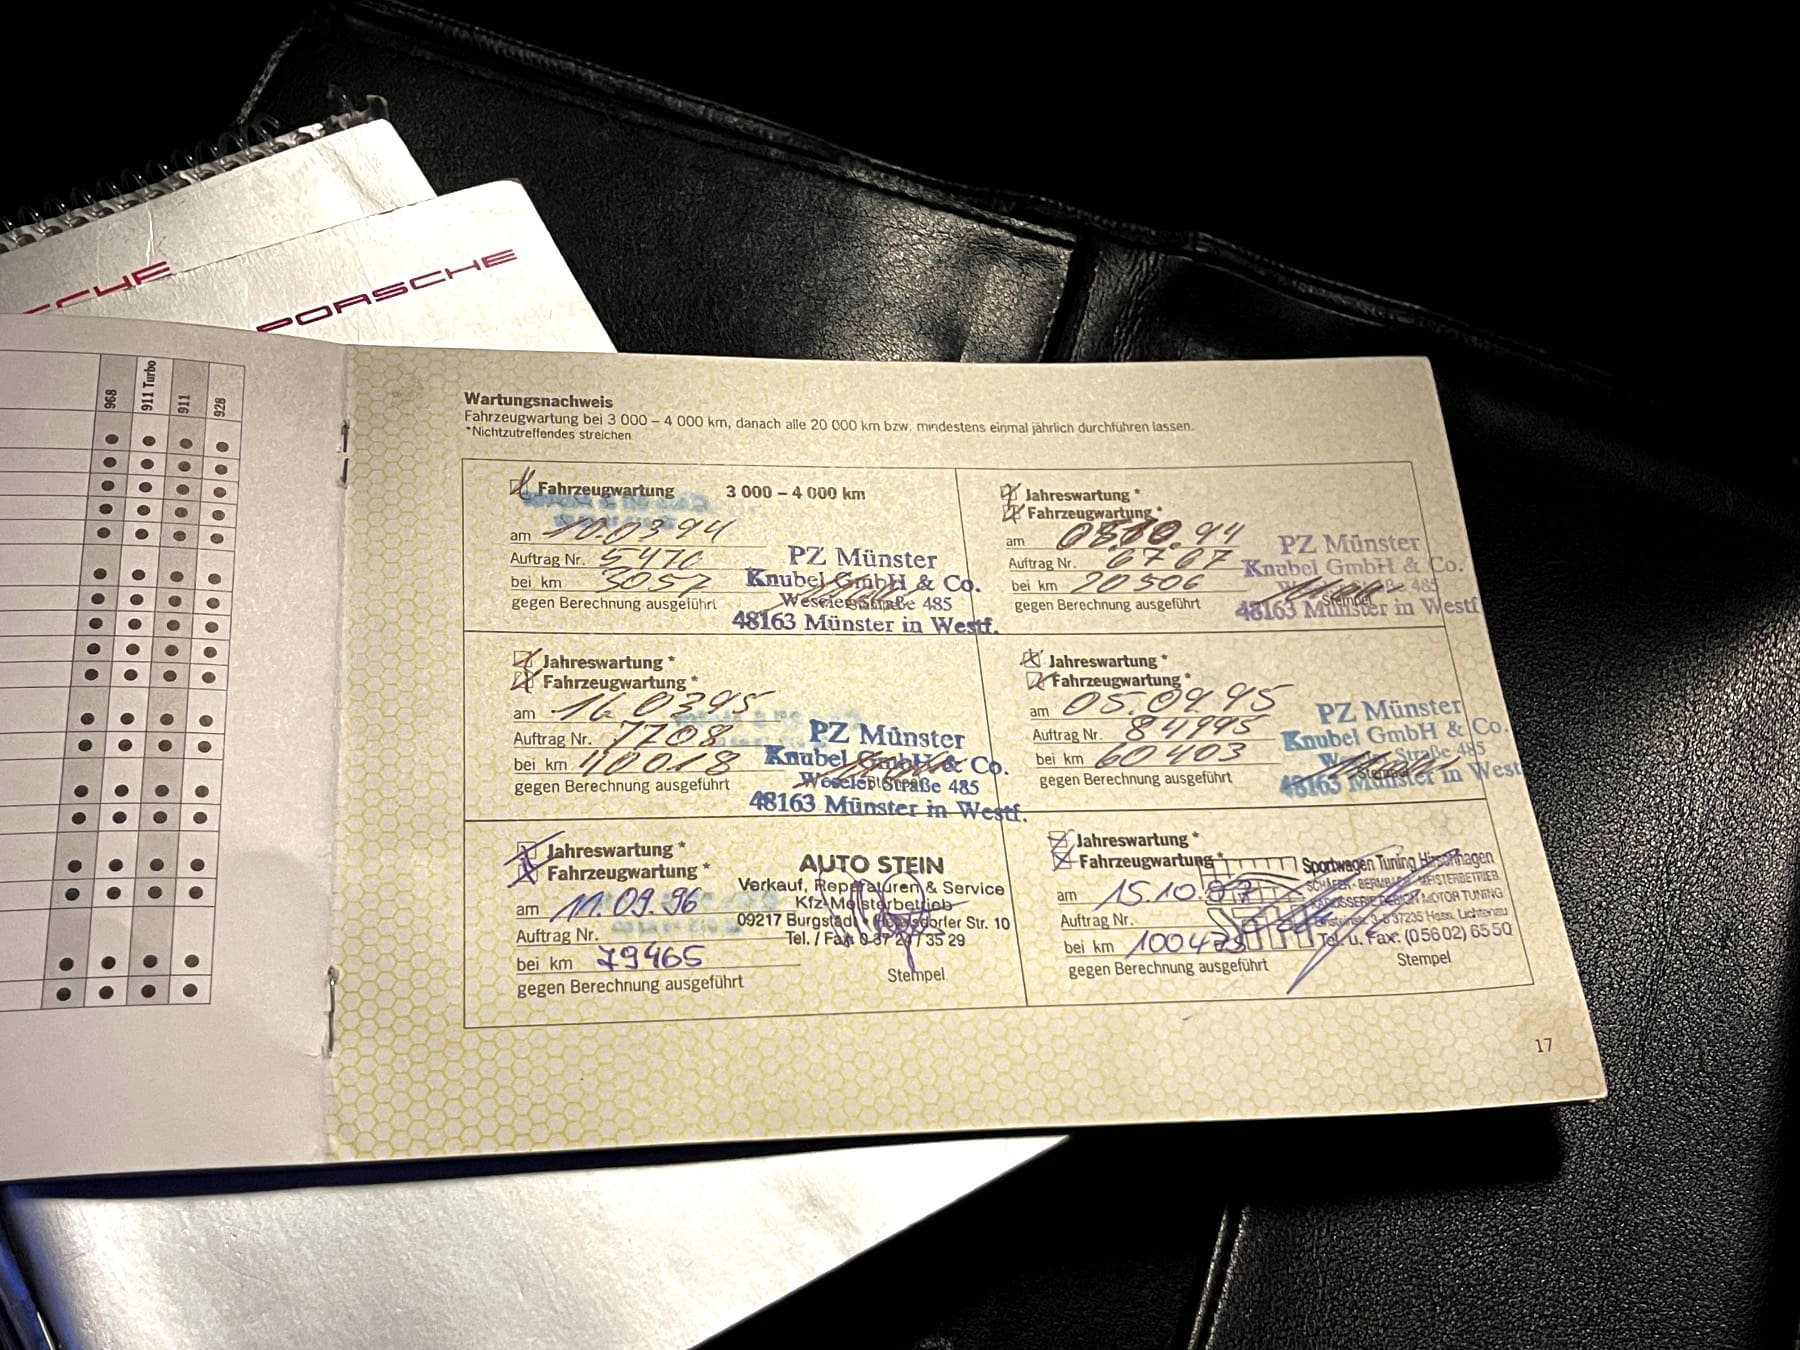 PORSCHE
968
911 Turbo
911
928
Wartungsnachweis
Fahrzeugwartung bei 3 000 – 4 000 km, danach alle 20 000 km bzw. mindestens einmal jährlich durchführen lassen.
*Nichtzutreffendes streichen
Fahrzeugwartung 3 000 – 4 000 km
am 10.03.94
Auftrag Nr. 5470
bei km 3057
gegen Berechnung ausgeführt
PZ Münster
Knubel GmbH & Co.
Weseler Straße 485
48163 Münster in Westf.
Jahreswartung *
Fahrzeugwartung *
am
Auftrag Nr. 6767
bei km 20506
gegen Berechnung ausgeführt
PZ Münster
Knubel GmbH & Co.
485
Stempel
48163 Münster in Westf
Jahreswartung *
Fahrzeugwartung *
am 16.03.95
Auftrag Nr. 7708
bei km 40018
gegen Berechnung ausgeführt
PZ Münster
Knubel GmbH & Co.
Weseler Straße 485
48163 Münster in Westf.
Jahreswartung *
Fahrzeugwartung *
am 05.09.95
Auftrag Nr. 84995
bei km 60403
gegen Berechnung ausgeführt
PZ Münster
Knubel GmbH & Co.
Straße 485
Stempel
48163 Münster in West
Jahreswartung *
Fahrzeugwartung *
am 11.09.96
Auftrag Nr.
bei km 79465
gegen Berechnung ausgeführt
AUTO STEIN
Verkauf, Reparaturen & Service
Kfz-Meisterbetrieb
09217 Burgstädt Str. 10
Tel. / Fax: 0 37 24 / 35 29
Stempel
Jahreswartung *
Fahrzeugwartung *
am 15.10.97
Auftrag Nr.
bei km
gegen Berechnung ausgeführt
Sportwagen Tuning Hirschhagen
MEISTERBETRIEB
KAROSSERIE DESIGN MOTOR TUNING
37235 Hess. Lichtenau
Tel. u. Fax: (05602) 65 50
Stempel
17